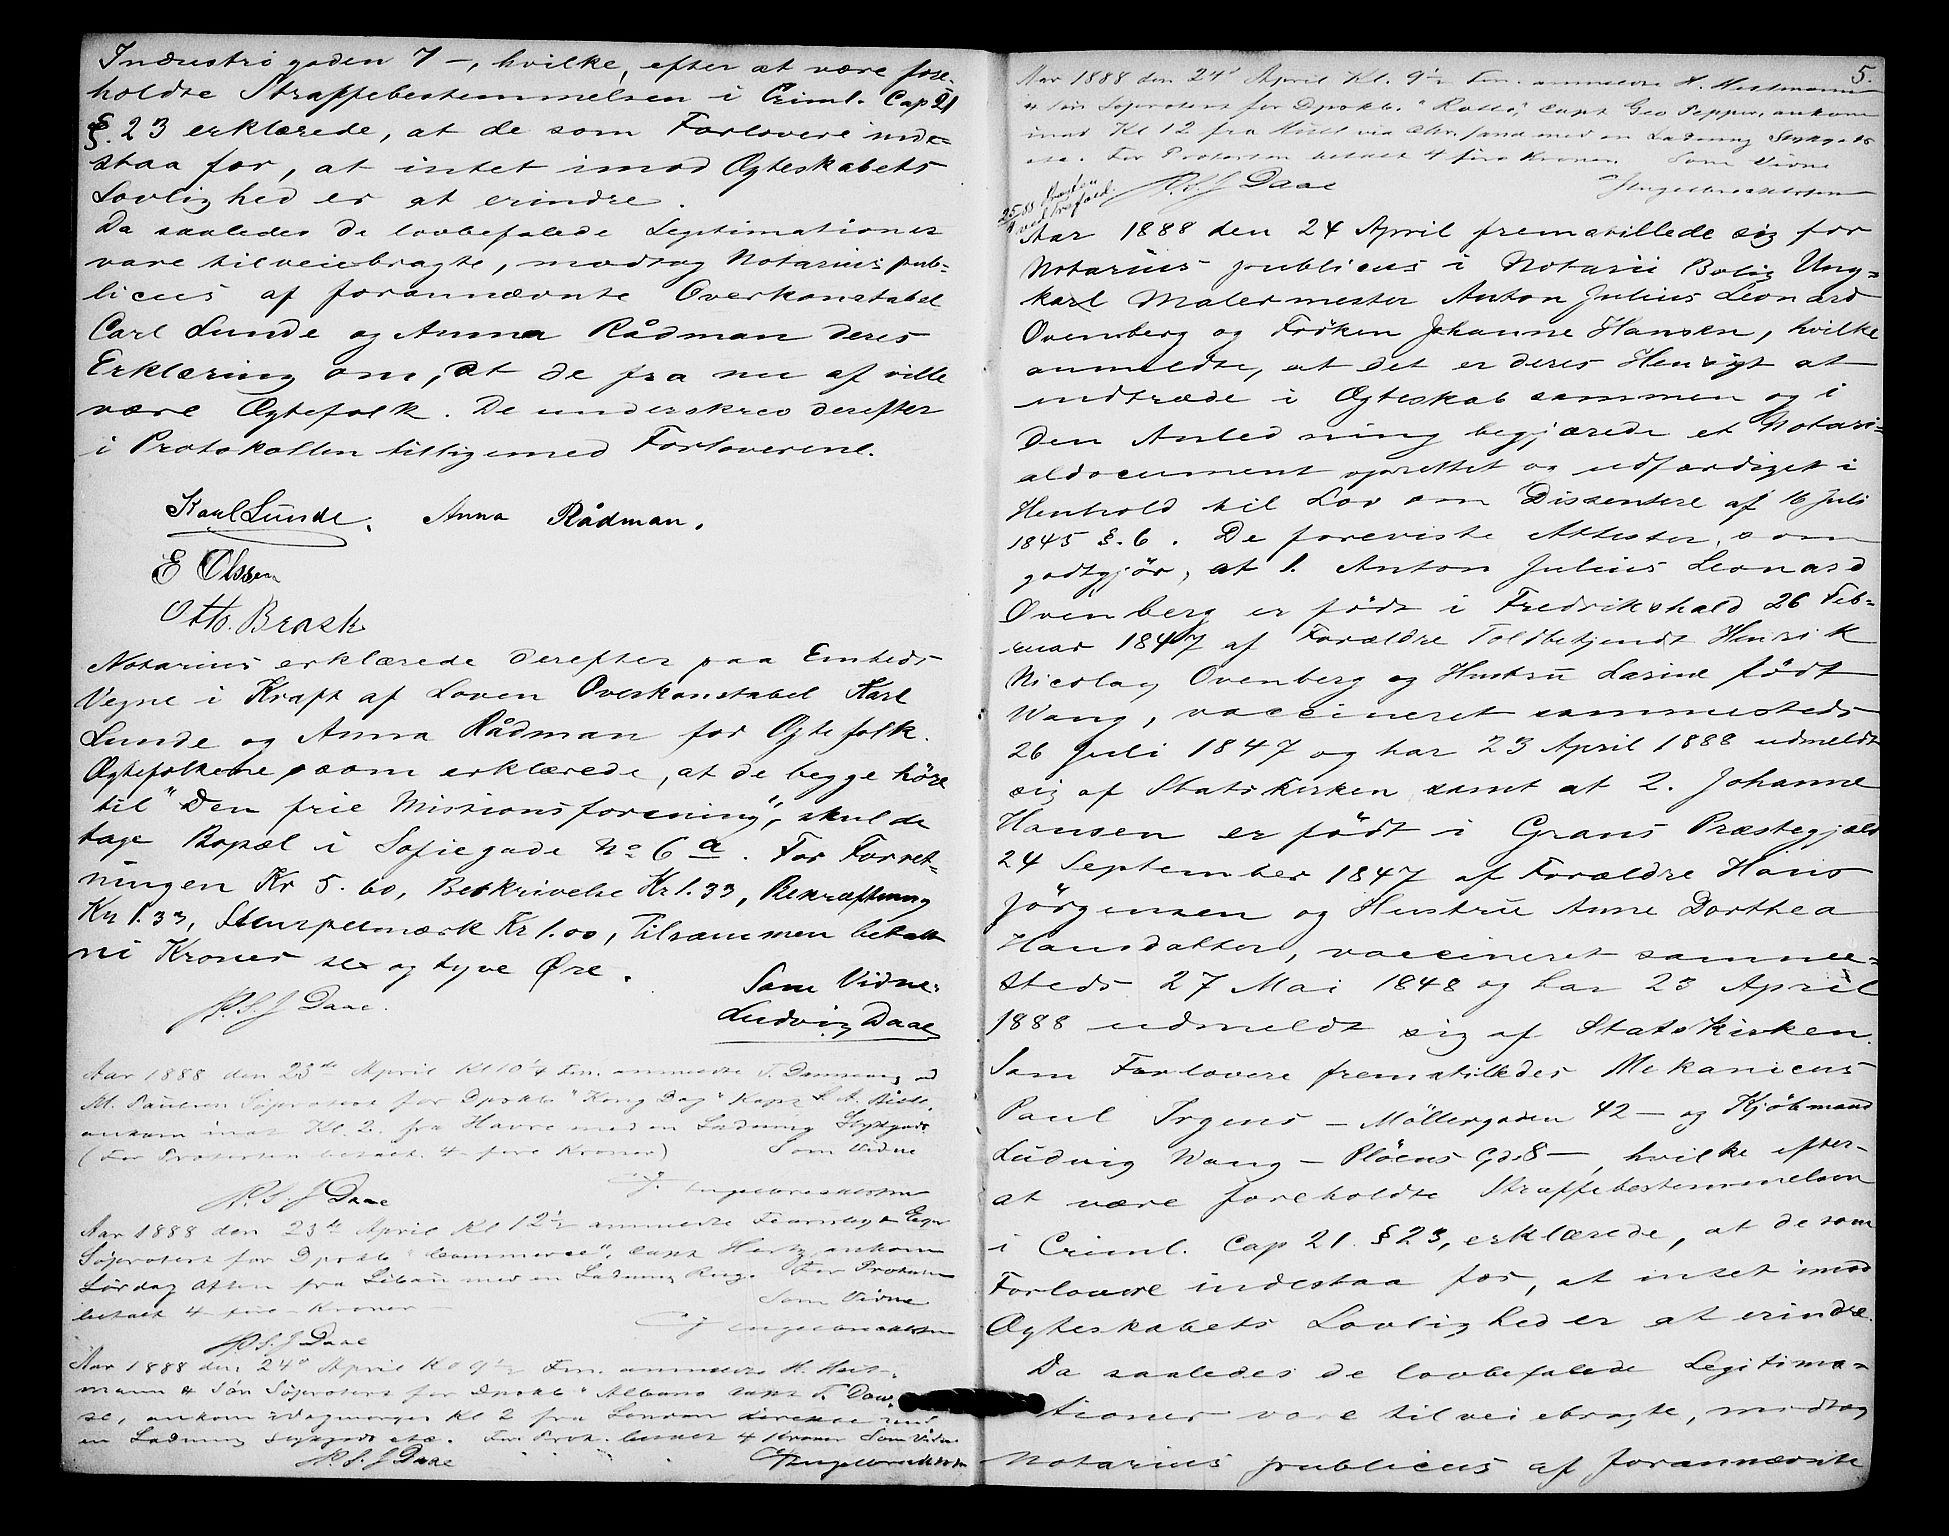 Industrigaden 7 –, hvilke, efter at være fore-
holdte Straffebestemmelsen i Criml. Cap 21
§. 23 erklærede, at de som Forlovere inde=
staa for, at intet imod Ægteskabets
Lovlighed er at erindre.
Da saaledes de lovbefalede Legitimationer
vare tilveiebragte, modtog Notarius pub=
licus af forannævnte Overkonstabel
Carl Lunde og Anna Rådman deres
Erklæring om, at de fra nu af ville
være Ægtefolk. De underskrev derefter
i Protokollen tilligemed Forloverene.
Karl Lunde. Anna Rådman.
E Olssen
Otto. Brask
Notarius erklærede derefter paa Embeds
Vegne i Kraft af Loven Overkonstabel Karl
Lunde og Anna Rådman for Ægtefolk.
Ægtefolkene, som erklærede, at de begge høre
til "Den frie Missionsforening", skulde
tage Bopæl i Sofiegade No 6 a. For Forret-
ningen Kr 5. 60, Beskrivelse Kr 1.33, Bekræftning
Kr 1.33, Stempelmærk Kr 1.00, Tilsammen betalt
ni Kroner sex og tyve Øre.
Som Vidne:
R. S. J Daae. Ludvig Daae
Aar 1888 den 23de April Kl 10 1/4 Fm. anmeldte T. Dannevig
M. Paulsen Søprotest for Dpskb "Kong Dag" Kapt
ankom inat Kl. 2. fra Havre med en Ladning Stykgods
(For Protesten betalt 4 – fire Kroner) Som Vidne
R. S. J Daae Engelbrechtsen
Aar 1888 den 23de April Kl 12 1/2 anmeldte Fearnley & Eger
Søprotest for Dpskb "Commerce", Capt Hertz, ankom
Lørdag Aften fra Libau med en Ladning Rug. For Protesten
betalt 4 – fire – Kroner Som Vidne
R. S. J Daae Engelbrechtsen
Aar 1888 den 24de April Kl 9 1/2 Fm. anmeldte H. Heit-
mann & Søn Søprotest for Dpskb "Albano" Capt
ankom idagmorges Kl 2 fra London med
en Ladning Stykgods etc. For Prot. betalt 4 Kroner Som Vidne
R. S. J Daae Engelbrechtsen
5.
Aar 1888 den 24de April Kl. 9 1/2 Fm. anmeldte H. Heitmann
& Søn Søprotest for Dpskb. "Rollo", Capt Geo Pepper, ankom
inat Kl 12 fra Hull via Chr.sand med en Ladning Stykgods
etc. For Protesten betalt 4 fire Kroner. Som Vidne
R. S. J Daae Engelbrechtsen
Aar 1888 den 24 April fremstillede sig for
Notarius publicus i Notarii Bolig Ung=
karl Malermester Anton Julius Leonard
Ovenberg og Frøken Johanne Hansen, hvilke
anmeldte, at det er deres Hensigt at
indtræde i Ægteskab sammen og i
den Anledning begjærede et Notari=
aldocument oprettet og udfærdiget i
Henhold til Lov om Dissentere af 16 Juli
1845 §. 6. De foreviste Attester, som
godtgjør, at 1. Anton Julius Leonard
Ovenberg er født i Fredrikshald 26 Feb=
ruar 1847 af Forældre Toldbetjendt Henrik
Nicolay Ovenberg og Hustru Larine født
Wang, vaccineret sammesteds
26 Juli 1847 og har 23 April 1888 udmeldt
sig af Statskirken samt at 2. Johanne
Hansen er født i Grans Præstegjæld
24 September 1847 af Forældre Hans
Jørgensen og Hustru Anne Dorthea
Hansdatter, vaccineret samme=
steds 27 Mai 1848 og har 23 April
1888 udmeldt sig af Statskirken.
Som Forlovere fremstilledes Mekanicus
Paul Irgens – Møllergaden 42 – og Kjøbmand
Ludvig Wang – Pløens Gd. 8 –, hvilke efter-
at være foreholdte Straffebestemmelsen
i Criml. Cap 21. § 23, erklærede, at de som
Forlovere indestaa for, at intet imod
Ægteskabets Lovlighed er at erindre.
Da saaledes de lovbefalede Legitima=
tioner vare tilveiebragte, modtog
Notarius publicus af forannævnte